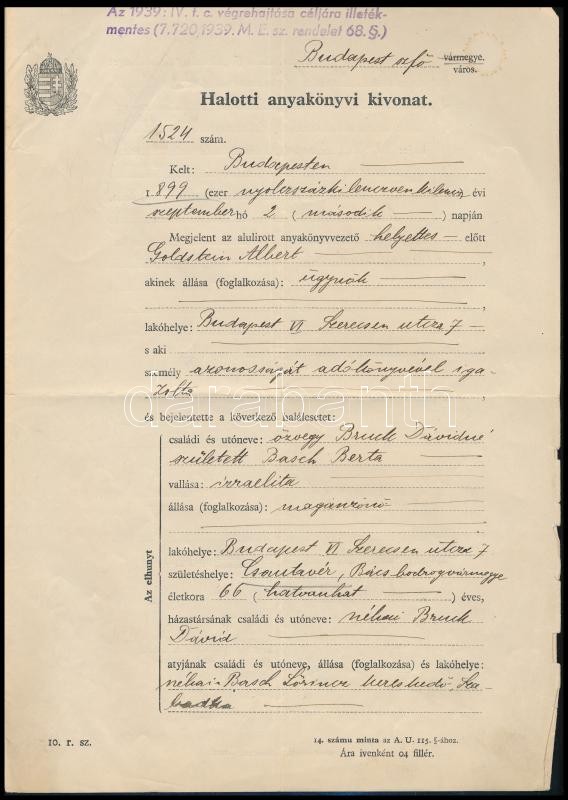 Az 1939: IV. t. c. végrehajtása céljára illeték-
mentes (7.720/1939. M. E. sz. rendelet 68. §.)
Budapest szfő vármegye.
város.
Halotti anyakönyvi kivonat.
1524 szám.
Kelt: Budapesten
1.899 (ezer nyolczszázkilenczvenkilencz) évi
szeptember hó 2 (második) napján
Megjelent az alulirott anyakönyvvezető helyettes előtt
Goldstein Albert,
akinek állása (foglalkozása): ügynök
lakóhelye: Budapest VI Szerecsen utcza 7
s aki
személy azonosságát adókönyvével iga-
zolta,
és bejelentette a következő halálesetet:
Az elhunyt
családi és utóneve: özvegy Bruck Dávidné
született Basch Berta
vallása: izraelita
állása (foglalkozása): magánzónő
lakóhelye: Budapest VI Szerecsen utcza 7
születéshelye: Csantavér, Bácsbodrogvármegye
életkora 66 (hatvanhat) éves,
házastársának családi és utóneve: néhai Bruck
Dávid
atyjának családi és utóneve, állása (foglalkozása) és lakóhelye:
néhai Basch Lőrincz kereskedő, Sza-
badka
10. r. sz.
14. számu minta az A. U. 115. §-ához.
Ára ivenként 04 fillér.
darabanth